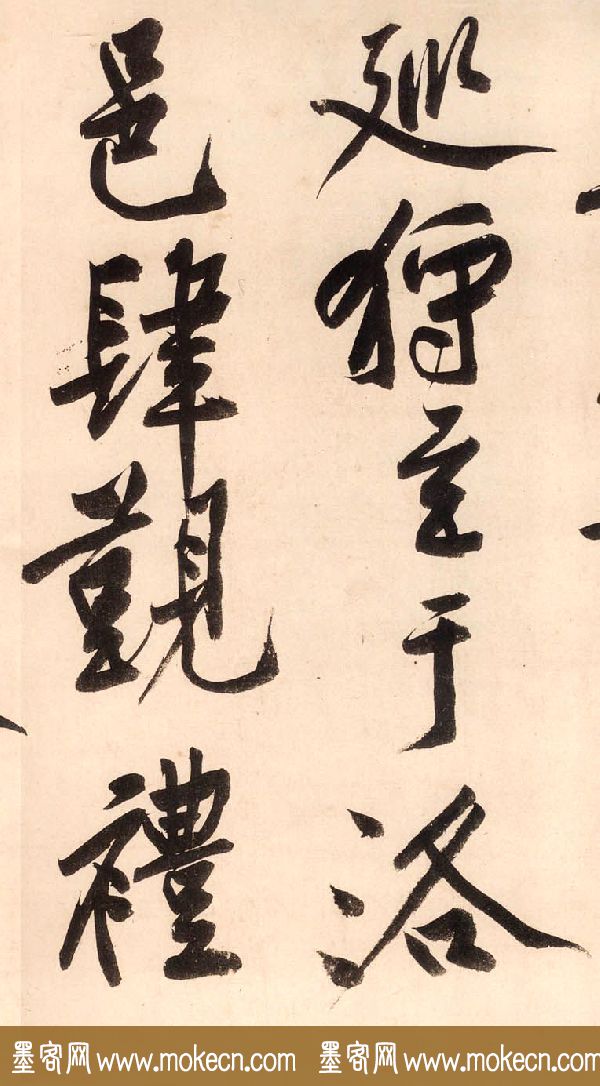 巡狩至于洛
邑肆覲禮
墨客网 www.mokecn.com 墨客网 www.mokecn.com